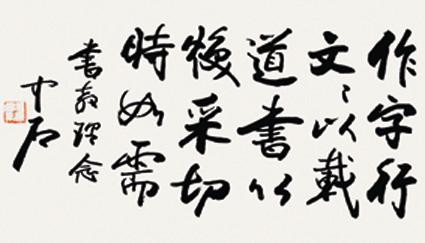 作字行
文〻以載
道書以
焕采切
時如需
書教理念
中石